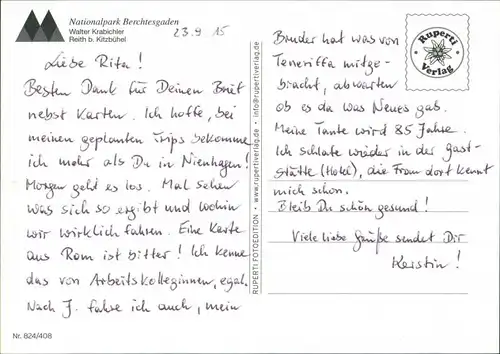 Nationalpark Berchtesgaden
Walter Krabichler
Reith b. Kitzbühel
23.9 15
Liebe Rita!
Besten Dank für Deinen Brief
nebst Karten. Ich hoffe, bei
meinen geplanten Trips bekomme
ich mehr als Du in Nienhagen!
Morgen geht es los. Mal sehen
was sich so ergibt und wohin
wir wirklich fahren. Eine Karte
aus Rom ist bitter! Ich kenne
das von Arbeitskolleginnen, egal.
Nach J. fahre ich auch, mein
Nr. 824/408
RUPERTI FOTOEDITION • www.rupertiverlag.de • info@rupertiverlag.de
Bruder hat was von
Teneriffa mitge-
bracht, abwarten
ob es da was Neues gab.
Meine Tante wird 85 Jahre.
Ich schlafe wieder in der Gast-
stätte (Hotel), die Frau dort kennt
mich schon.
Bleib Du schön gesund!
Viele liebe Grüße sendet Dir
Kerstin!
Ruperti
Verlag